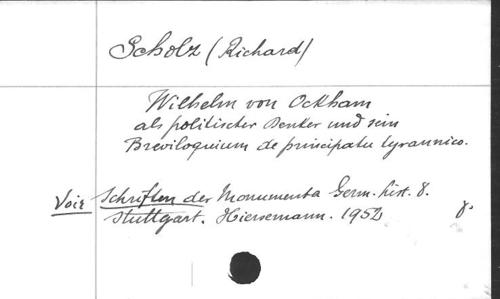 Scholz (Richard)
Wilhelm von Ockham
als politischer Denker und sein
Breviloquium de principatu tyrannico.
Voir Schriften der Monumenta Germ. hist. 8.
Stuttgart. Hiersemann. 1952 8°